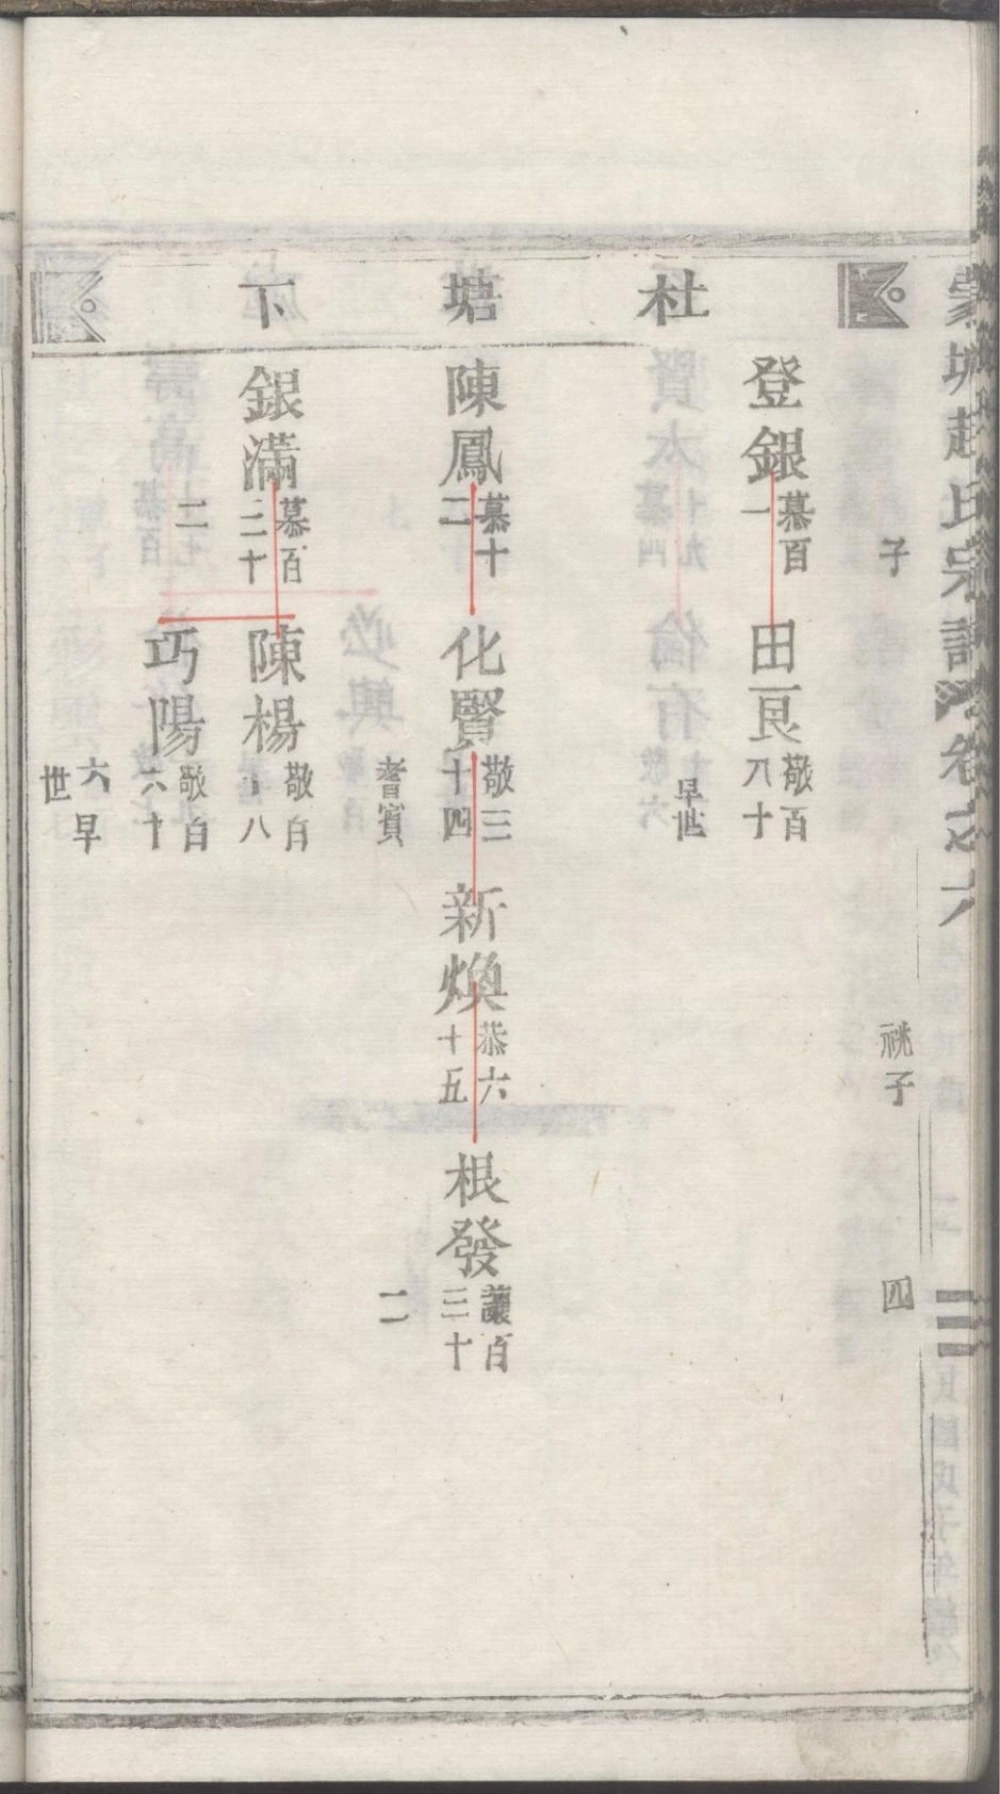 趙氏宗譜 卷之六
子 祧子 四
杜塘下
登銀 慕百一 田良 敬百八十 早世
陳鳳 慕十二 化賢 敬三十四 耆賓 新煥 恭六十五 根發 讓百三十二
銀滿 慕百二十二 陳楊 敬百八
巧陽 敬百六十六早世